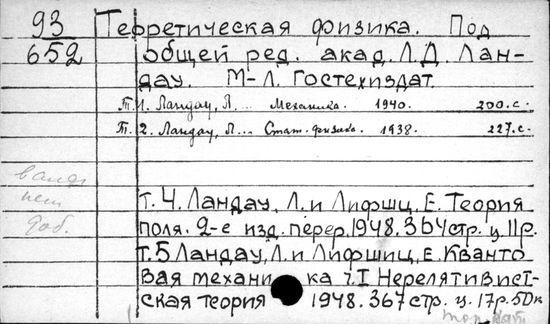 93
652
Теоретическая физика. Под
общей ред. акад. Л.Д. Лан-
дау. М-Л. Гостехиздат.
Т. 1. Ландау, Л... Механика. 1940. 200.с.
Т. 2. Ландау, Л... Стат. физика. 1938. 227.с.
нет
доб.
Т. Ч. Ландау, Л. и Лифшиц, Е. Теория
поля. 2-е изд. перер. 1948. 364 стр. ц. 11 р.
Т. 5 Ландау, Л. и Лифшиц, Е. Кванто
вая механика ч. I Нерелятивист-
ская теория 1948. 367 стр. ц. 17 р. 50 к